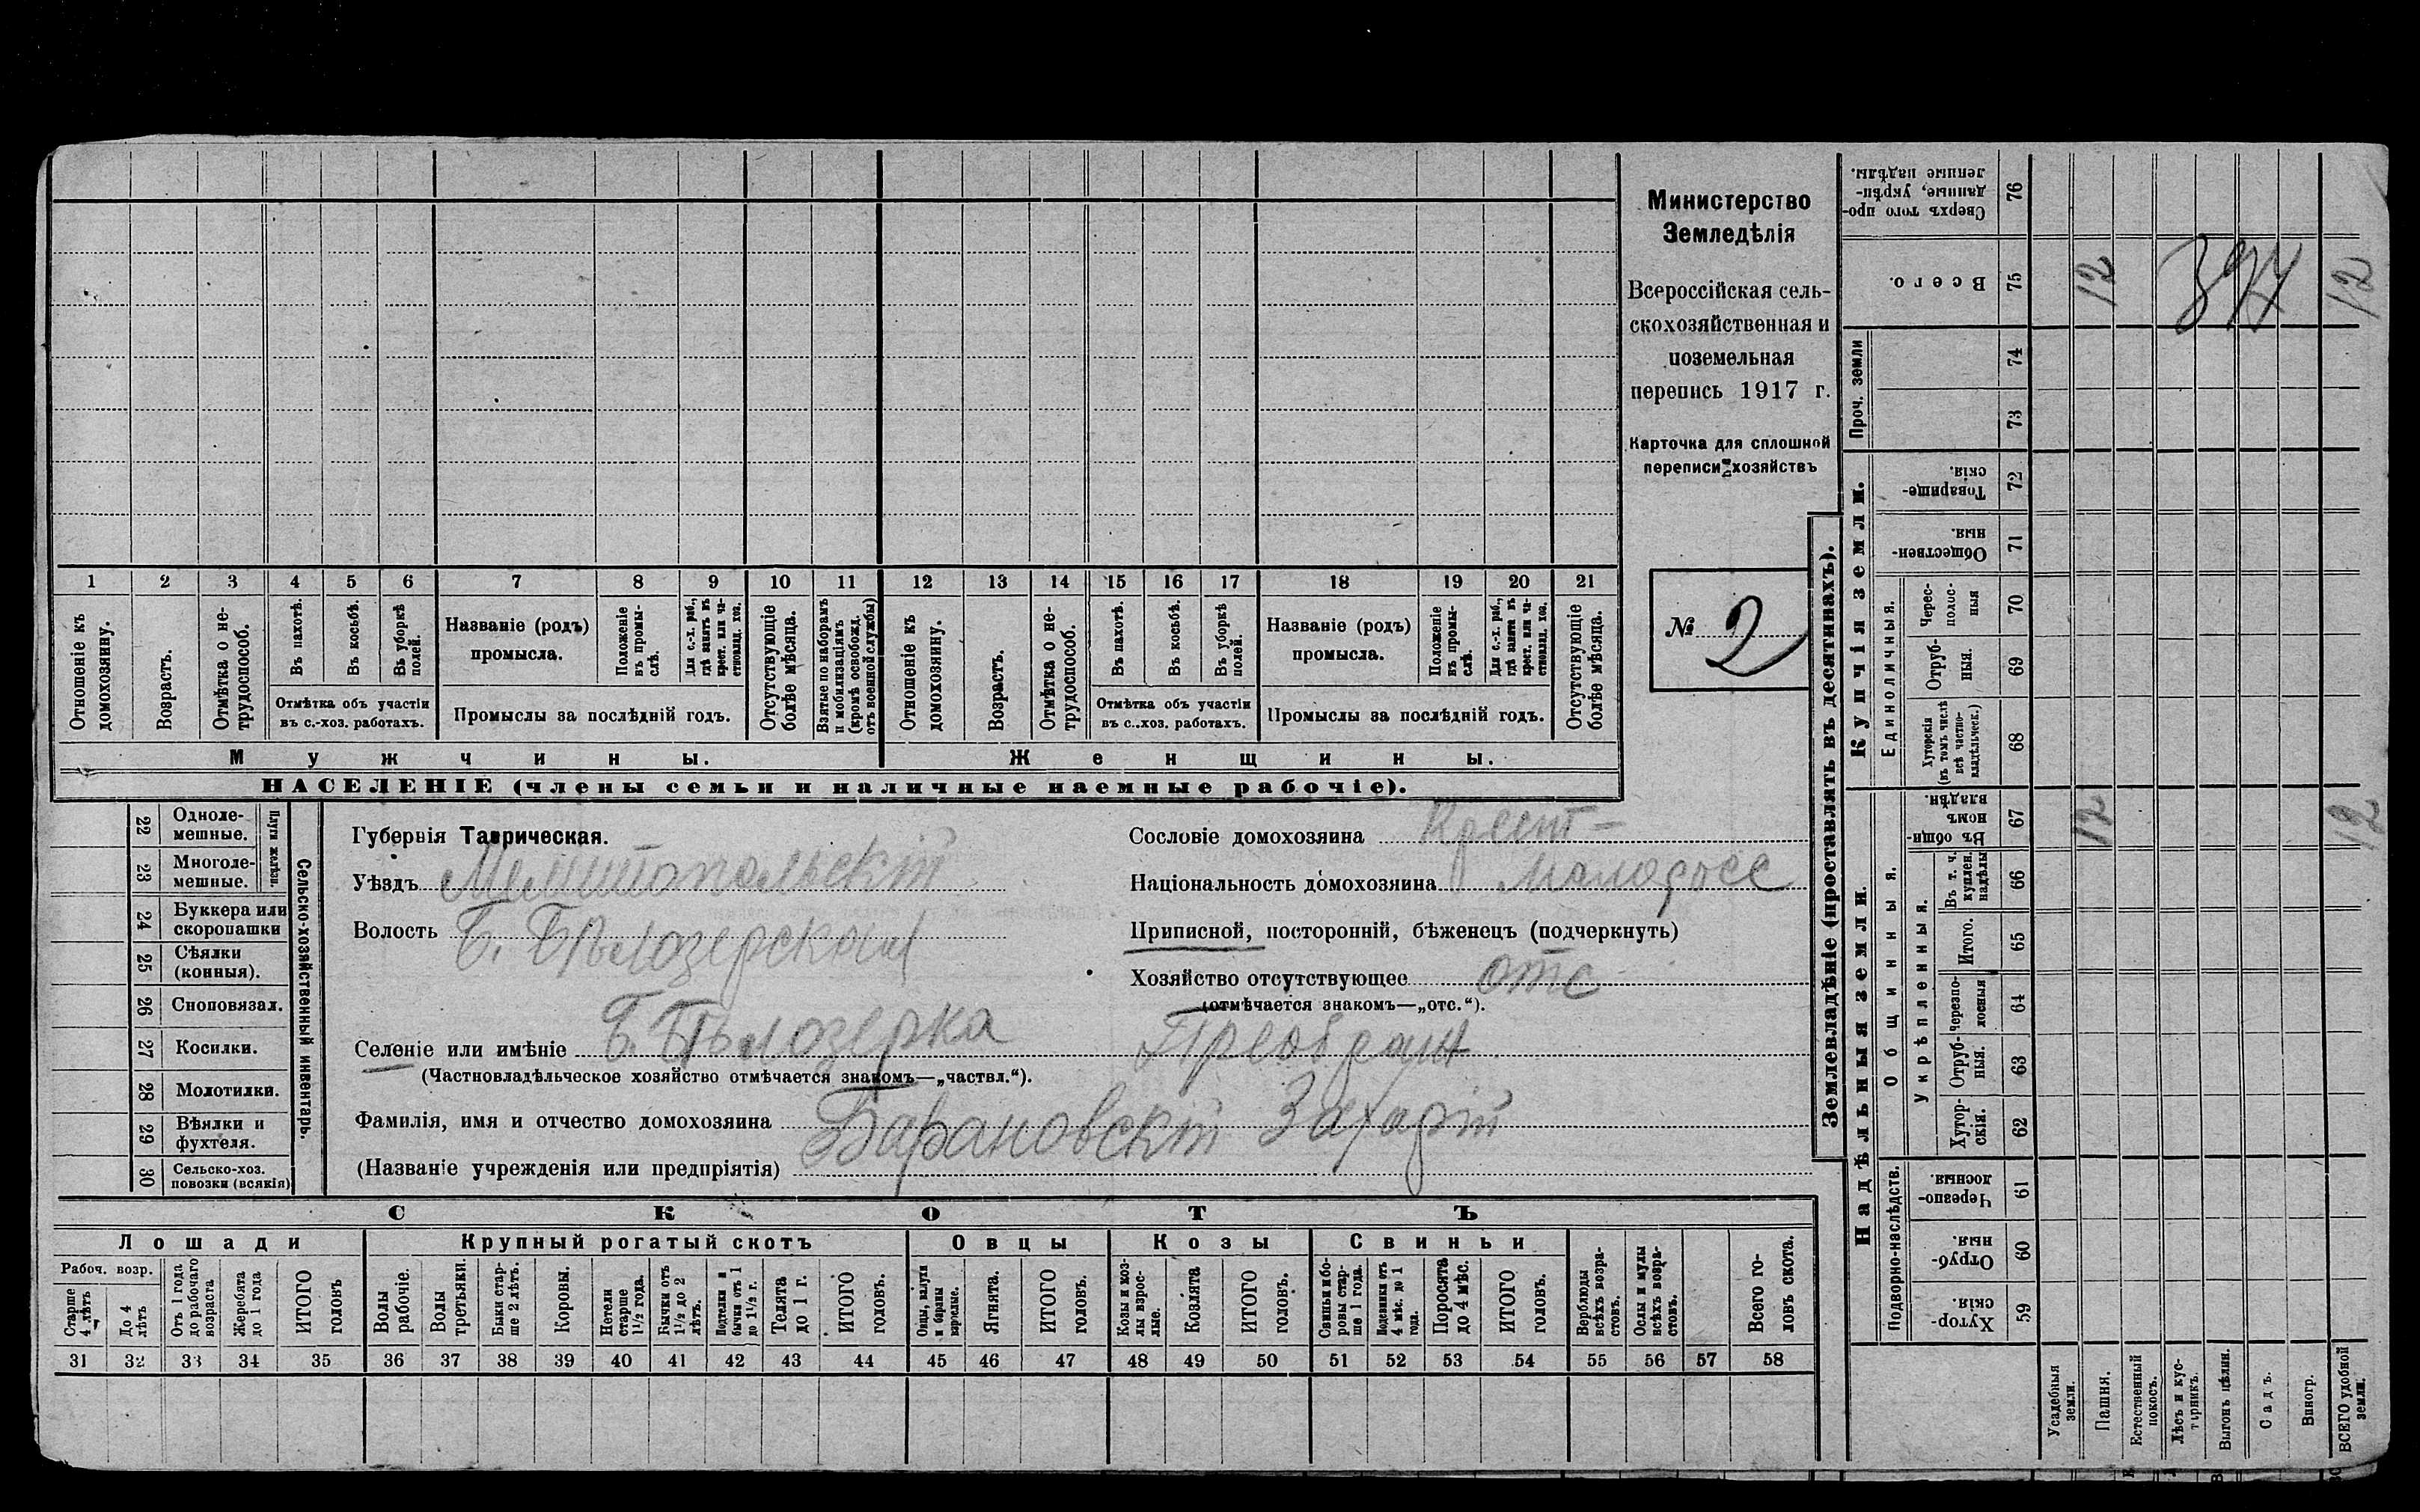 Министерство
Земледѣлія
Всероссійская сель-
скохозяйственная и
поземельная
перепись 1917 г.
Карточка для сплошной
переписи хозяйствъ
№ 2
1 2 3 4 5 6 7 8 9 10 11 12 13 14 15 16 17 18 19 20 21
Отношеніе къ домохозяину.
Возрастъ.
Отмѣтка о не-трудоспособ.
Въ пахотѣ.
Въ косьбѣ.
Въ уборкѣ полей.
Отмѣтка объ участіи
въ с.-хоз. работахъ.
Названіе (родъ)
промысла.
Положеніе въ промы-слѣ.
Для с.-х. раб., гдѣ занятъ въ крест. или ча-стновлад. хоз.
Промыслы за послѣдній годъ.
Отсутствующіе болѣе мѣсяца.
Взятые по наборамъ и мобилизаціямъ (кромѣ освобожд. отъ военной службы)
Отношеніе къ домохозяину.
Возрастъ.
Отмѣтка о не-трудоспособ.
Въ пахотѣ.
Въ косьбѣ.
Въ уборкѣ полей.
Отмѣтка объ участіи
въ с..хоз. работахъ.
Названіе (родъ)
промысла.
Положеніе въ промы-слѣ.
Для с.-х. раб., гдѣ занята въ крест. или ча-стновлад. хоз.
Промыслы за послѣдній годъ.
Отсутствующіе болѣе мѣсяца.
Мужчины.
Женщины.
НАСЕЛЕНІЕ (члены семьи и наличные наемные рабочіе).
22 Одноле-мешные.
23 Многоле-мешные.
Плуги желѣзн.
24 Буккера или скоропашки
25 Сѣялки (конныя).
26 Сноповязал.
27 Косилки.
28 Молотилки.
29 Вѣялки и фухтеля.
30 Сельско-хоз. повозки (всякія)
Сельско-хозяйственный инвентарь.
Губернія Таврическая.
Уѣздъ Мелитопольскій
Волость Б. Бѣлозерской
Селеніе или имѣніе Б. Бѣлозерка
(Частновладѣльческое хозяйство отмѣчается знакомъ—„частвл.“).
Фамилія, имя и отчество домохозяина Барановскій Захарій
(Названіе учрежденія или предпріятія)
Сословіе домохозяина Крест-
Національность домохозяина малоросс
Приписной, посторонній, бѣженецъ (подчеркнуть)
Хозяйство отсутствующее отс
(отмѣчается знакомъ—„отс.“).
Преображ
СКОТЪ
Лошади
Крупный рогатый скотъ
Овцы
Козы
Свиньи
Рабоч. возр.
Старше 4 лѣтъ
До 4 лѣтъ
Отъ 1 года до рабочаго возраста
Жеребята до 1 года
ИТОГО головъ
Волы рабочіе.
Волы третьяки.
Быки стар-ше 2 лѣтъ.
Коровы.
Нетели старше 1½ года.
Бычки отъ 1½ до 2 лѣтъ.
Подтелки и бычки отъ 1 до 1½ г.
Телята до 1 г.
ИТОГО головъ.
Овцы, валухи и бараны взрослые.
Ягнята.
ИТОГО головъ.
Козы и коз-лы взрос-лые.
Козлята
ИТОГО головъ.
Свиньи и бо-ровы стар-ше 1 года.
Подсвинки отъ 4 мѣс. до 1 года.
Поросята до 4 мѣс.
ИТОГО головъ.
Верблюды всѣхъ возра-стовъ.
Ослы и мулы всѣхъ возра-стовъ.
Всего го-ловъ скота.
31 32 33 34 35 36 37 38 39 40 41 42 43 44 45 46 47 48 49 50 51 52 53 54 55 56 57 58
Землевладѣніе (проставлять въ десятинахъ).
Надѣльныя земли.
Купчія земли.
Проч. земли
Подворно-наслѣдств.
Общинныя.
Укрѣпленныя.
Единоличныя.
59 Хутор-скія.
60 Отруб-ныя.
61 Черезпо-лосныя.
62 Хутор-скія.
63 Отруб-ныя.
64 Черезпо-лосныя
65 Итого.
66 Въ т. ч. куплен. надѣлы
67 Въ общи-номъ владѣн.
68 Хуторскія (въ томъ числѣ всѣ частно-владѣльческ.)
69 Отруб-ныя.
70 Черес-полос-ныя
71 Обществен-ныя.
72 Товарище-скія.
73
74
75 Всего.
76 Сверхъ того про-данные, укрѣп-ленные надѣлы.
12 394 12
12 12
Усадебныя земли.
Пашня.
Естественный покосъ.
Лѣсъ и кус-тарникъ.
Выгонъ цѣлин.
Садъ.
Виногр.
ВСЕГО удобной земли.